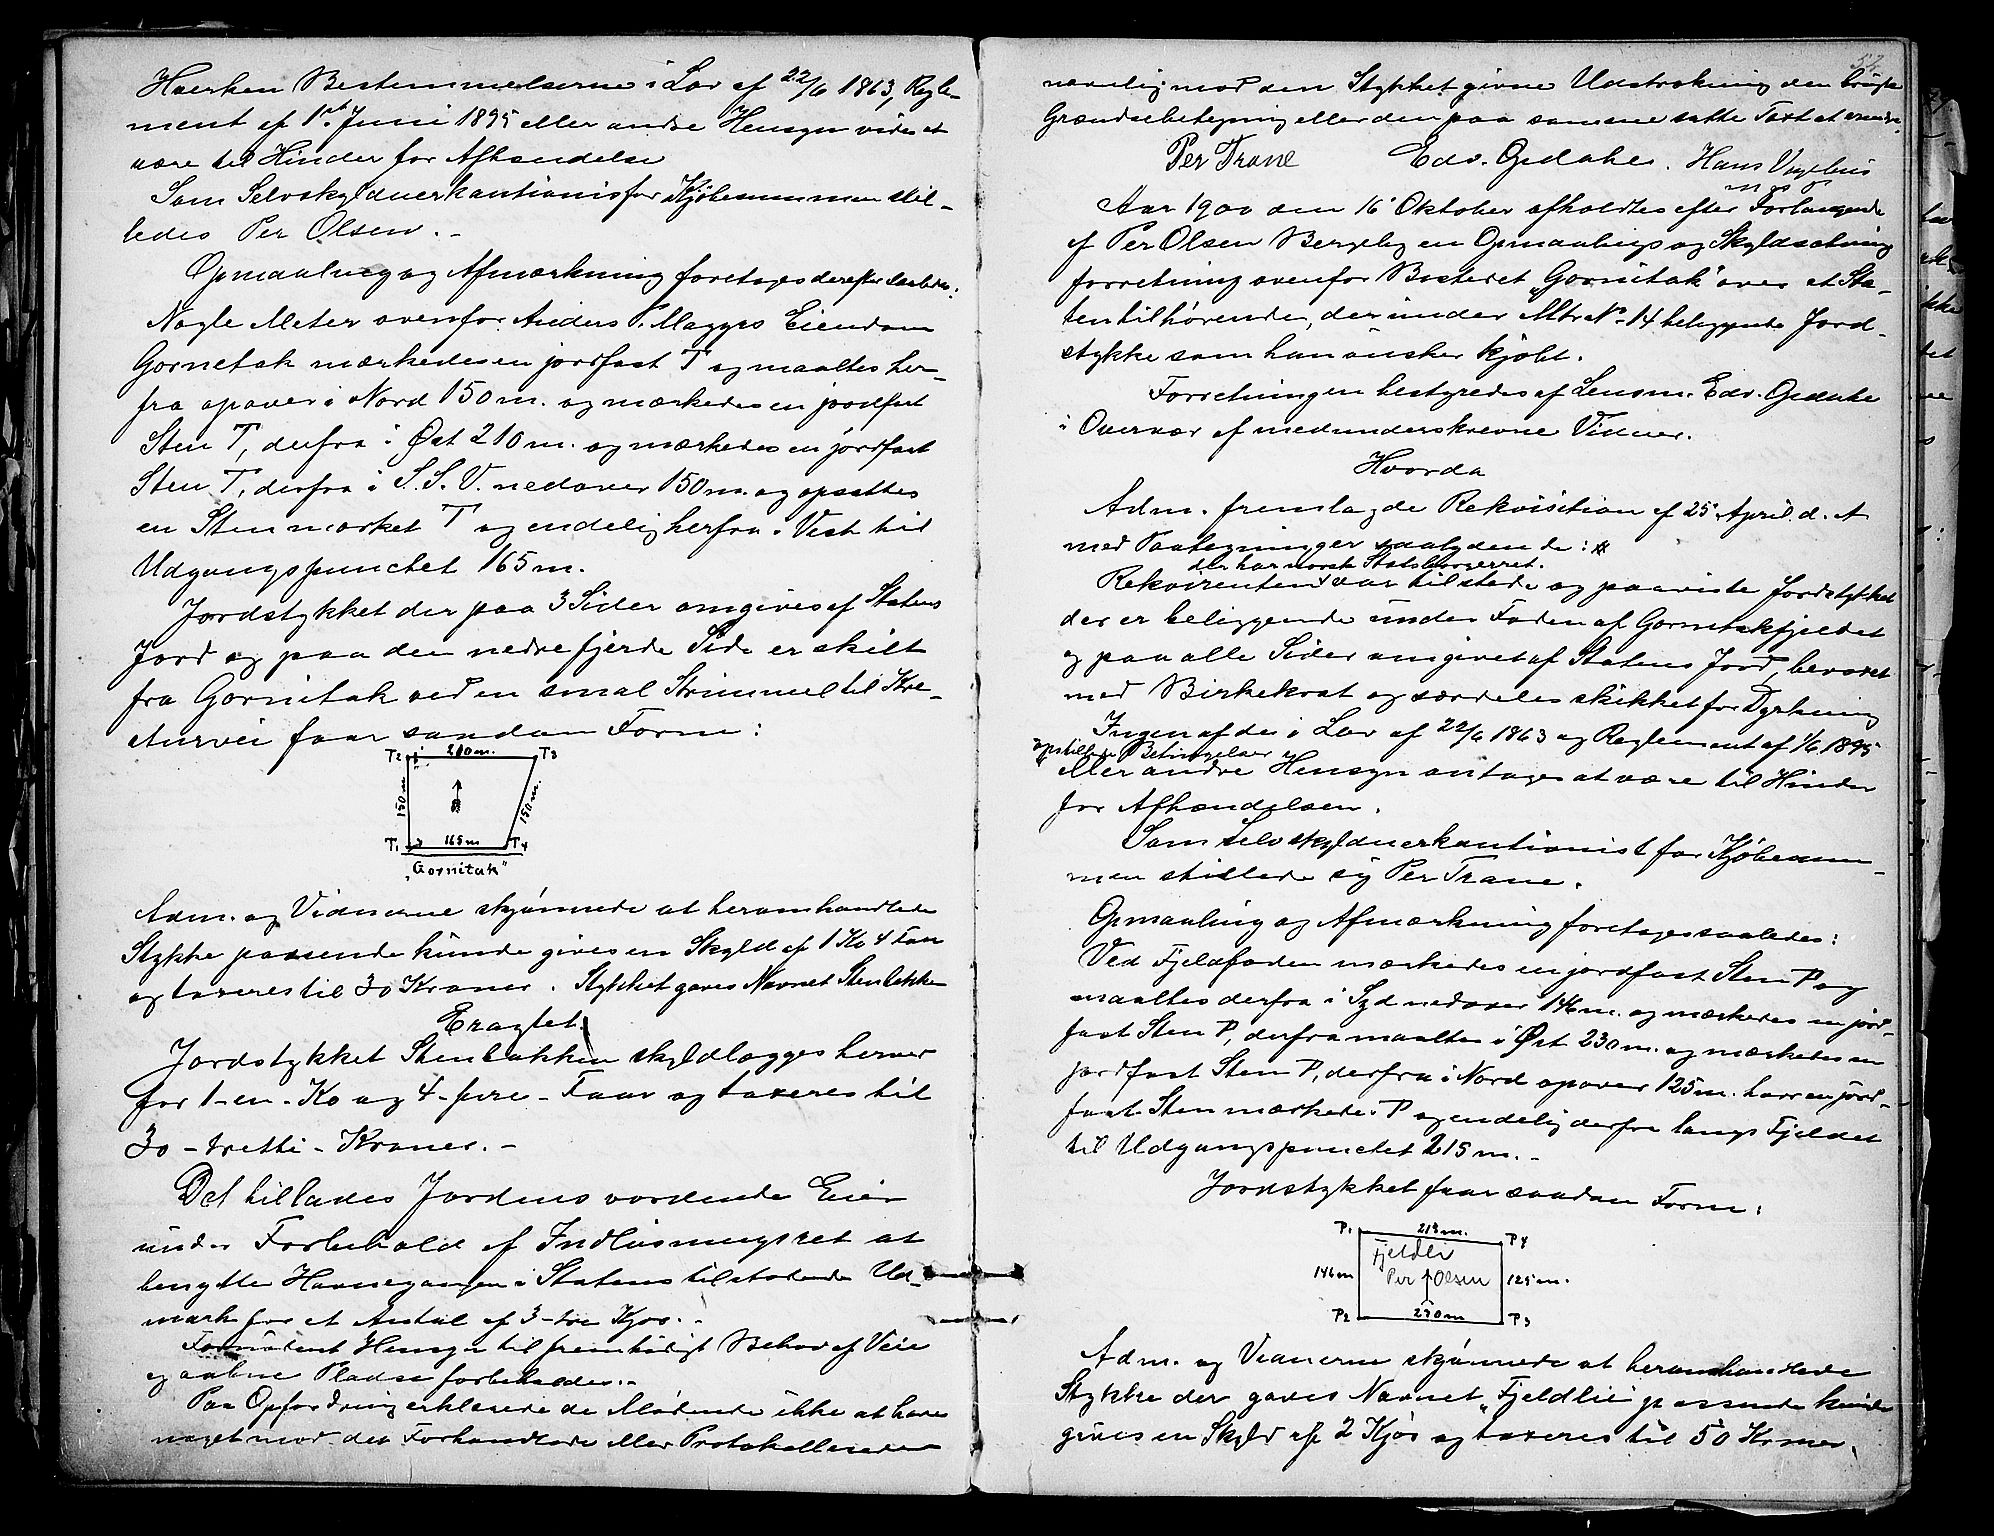 Hverken Bestemmelserne i Lov af 22/6 1863, Regle-
ment af 1ste Juni 1895 eller andre Hensyn vides at
være til Hinder for Afhændelse
Som Selvskyldnerkautionist for Kjöbesummen stil-
ledes Per Olsen. -
Opmaaling og Afmærkning foretoges derefter saaledes:
Nogle Meter ovenfor Anders P. Magges Eiendom
Gornetak mærkedes en jordfast T og maaltes her-
fra opover i Nord 150 m. og mærkedes en jordfast
Sten T, derfra i Øst 210 m. og mærkedes en jordfast
Sten T, derfra i S.S.V. nedover 150 m. og opsattes
en Sten mærket T og endelig herfra i Vest til
Udgangspunctet 165 m.
Jordstykket der paa 3 Sider omgives af Statens
Jord og paa den nedre fjerde Side er skilt
fra Gornitak ved en smal Strimmel til Kre-
aturvei faar saadan Form:
T2 210 m. T3
150 m 150 m.
T1 165 m T4
"Gornitak"
Adm. og Vidnerne skjönnede at heromhandlede
Stykke passende kunde gives en Skyld af 1 Ko 4 Faar
og taxeres til 30 Kroner. Stykket gaves Navnet Stenbakken
Eragtet
Jordstykket Stenbakken skyldlægges herver
for 1 - en - Ko og 4 - fire - Faar og taxeres til
30 - tretti - Kroner. -
Det tillades Jordens vordende Eier
under Forbehold af Indlösningsret at
benytte Havnegangen i Statens tilstødende Ud-
mark for et Antal af 3 - tre Kjør. -
Fornödent Hensyn til fremtidigt Behov af Veie
og aabne Pladse forbeholdes. -
Paa Opfordring erklærede de Mödende ikke at have
noget mod det Forhandlede eller Protokollerede
52
navnlig mod den Stykket givne Udstrækning den brugte
Grændsebetegning eller den paa samme satte Taxt at erindre.
Per Trane Edv. Gedahe. Hans
m. p. P.
Aar 1900 den 16 Oktober afholdtes efter Forlangende
af Per Olsen Bergeby en Opmaalings og Skyldsætning
forretning ovenfor Bostedet "Gornitak" over et Sta-
ten tilhörende, der under Mtr. No 14 beliggende Jord-
stykke som han önsker kjöbt.
Forretningen bestyredes af Lensm. Edv. Gedahe
i Overvær af medunderskrevne Vidner.
Hvorda
Adm. fremlagde Rekvisition af 25 April d. A
med Paategninger saalydende:
der har norsk Statsborgerret.
Rekvirenten var tilstede og paaviste Jordstykket
der er beliggende under Foden af Gornitakfjeldet
og paa alle Sider omgivet af Statens Jord, bevoxet
med Birkekrat og særdeles skikket for Dyrkning
Ingen af de i Lov af 22/6 1863 og Reglement af 1/6 1895
opstillede Betingelser
eller andre Hensyn antages at være til Hinder
for Afhændelsen.
Som Selvskyldnerkautionist for Kjöbesum-
men stillede sig Per Trane.
Opmaaling og Afmærkning foretoges saaledes:
Ved Fjeldfoden mærkedes en jordfast Sten P og
maaltes derfra i Syd nedover 146 m. og mærkedes en jord-
fast Sten P, derfra maaltes i Øst 230 m. og mærkedes en
jordfast Sten P, derfra i Nord opover 125 m. hvor en jord-
fast Sten mærkedes P og endelig derfra langs Fjeldet
til Udgangspunctet 215 m. -
Jordstykket faar saadan Form:
P1 215 m. P4
Fjeldli
146 m Per Olsen 125 m.
P2 230 m P3
Adm. og Vidnerne skjönnede at heromhandlede
Stykke der gaves Navnet "Fjeldlie" passende kunde
gives en Skyld af 2 Kjör og taxeres til 50 Kroner.